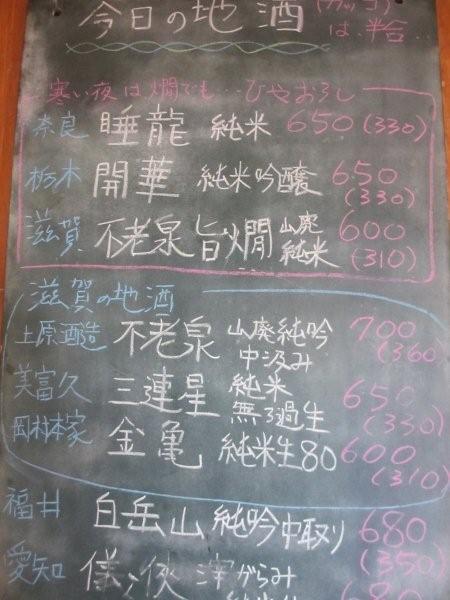 今日の地酒 (カッコ)は、半合
寒い夜は燗でも…ひやおろし
奈良 睡龍 純米 650(330)
栃木 開華 純米吟醸 650(330)
滋賀 不老泉旨燗 山廃純米 600(310)
滋賀の地酒
上原酒造 不老泉 山廃純吟中汲み 700(360)
美冨久 三連星 純米無ろ過生 650(330)
岡村本家 金亀 純米生80 600(310)
福井 白岳山 純吟中取り 680(350)
愛知 がらみ